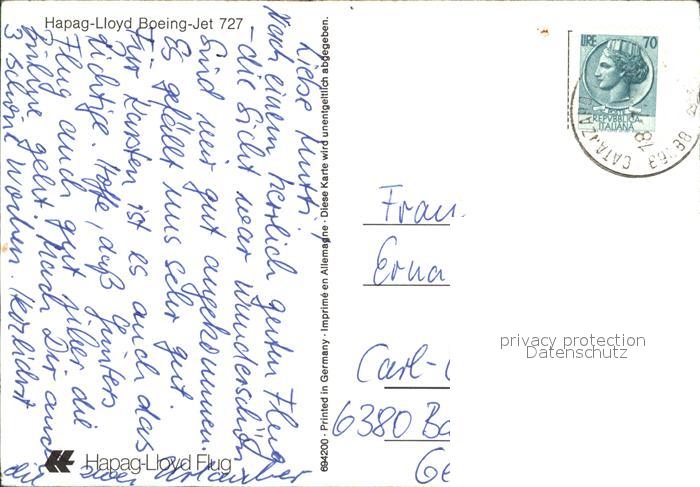 Hapag-Lloyd Boeing-Jet 727
Liebe Mutti,
Nach einem herrlich guten Flug
– die Sicht war wunderschön
sind wir gut angekommen.
Es gefällt uns sehr gut.
Für Karsten ist es auch das
richtige. Hoffe, daß Günters
Flug auch gut über die
Bühne geht. Nach Dir auch
3 schöne Wochen. Herzlichst
Urlauber
Hapag-Lloyd Flug
694200 · Printed in Germany · Imprimé en Allemagne · Diese Karte wird unentgeltlich abgegeben.
LIRE 70
POSTE
REPVBBLICA
ITALIANA
Frau
Erna
Carl-
6380 Ba
Ge
privacy protection
Datenschutz